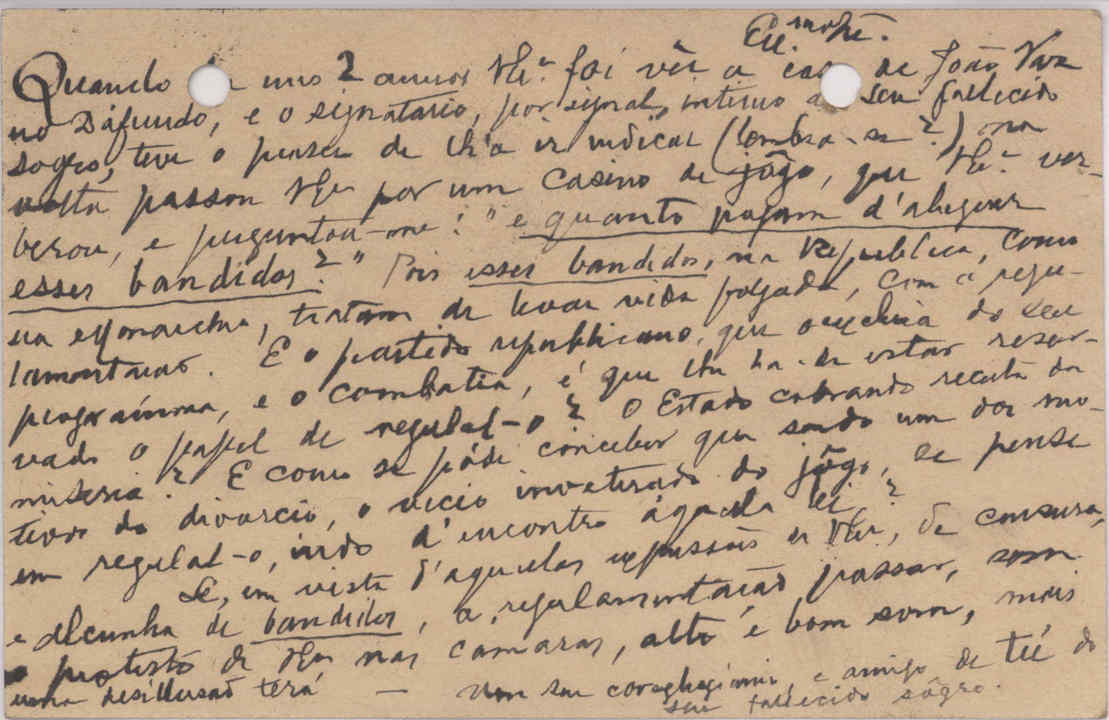 Quando unns 2 annos V. Exª foi vêr a casa de João Vaz
no Dáfundo, e o signatario, por signal, intimo do seu fallecido
sogro, teve o prazer de lh'a ir indicar (lembra-se?) na
volta passou V. Ex por um casino de jôgo, que V. Exª ver-
berou, e perguntou-me: "e quanto pagam d'alugueur
esses bandidos?" Pois esses bandidos, na Republica, como
na Monarchia, tratam de levar vida folgada, com a regu-
lamentacao. E o partido republicano, que o excluia do seu
programma, e o combatia, é que lhe ha-de estar reser-
vado o papel de regulal-o? O Estado cobrando receita da
miseria? E como se póde conceber que sendo um dos mo-
tivos do divorcio, o vicio inveterado do jôgo, se pense
em regulal-o, indo d'encontro áquella lei?
Se, em vista d'aquellas expressões de V. Ex, de censura,
e alcunha de bandidos, a regulamentação passar, sem
o protesto de V. Ex nas camaras, alto e bom som, mais
uma desillusão terá — Um seu coreligionario, e amigo de do
seu fallecido sôgro.